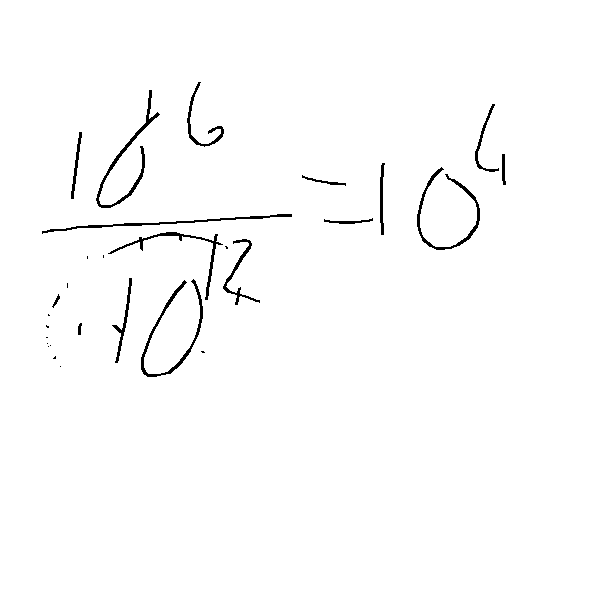 10^16
/ 10^12
= 10^4